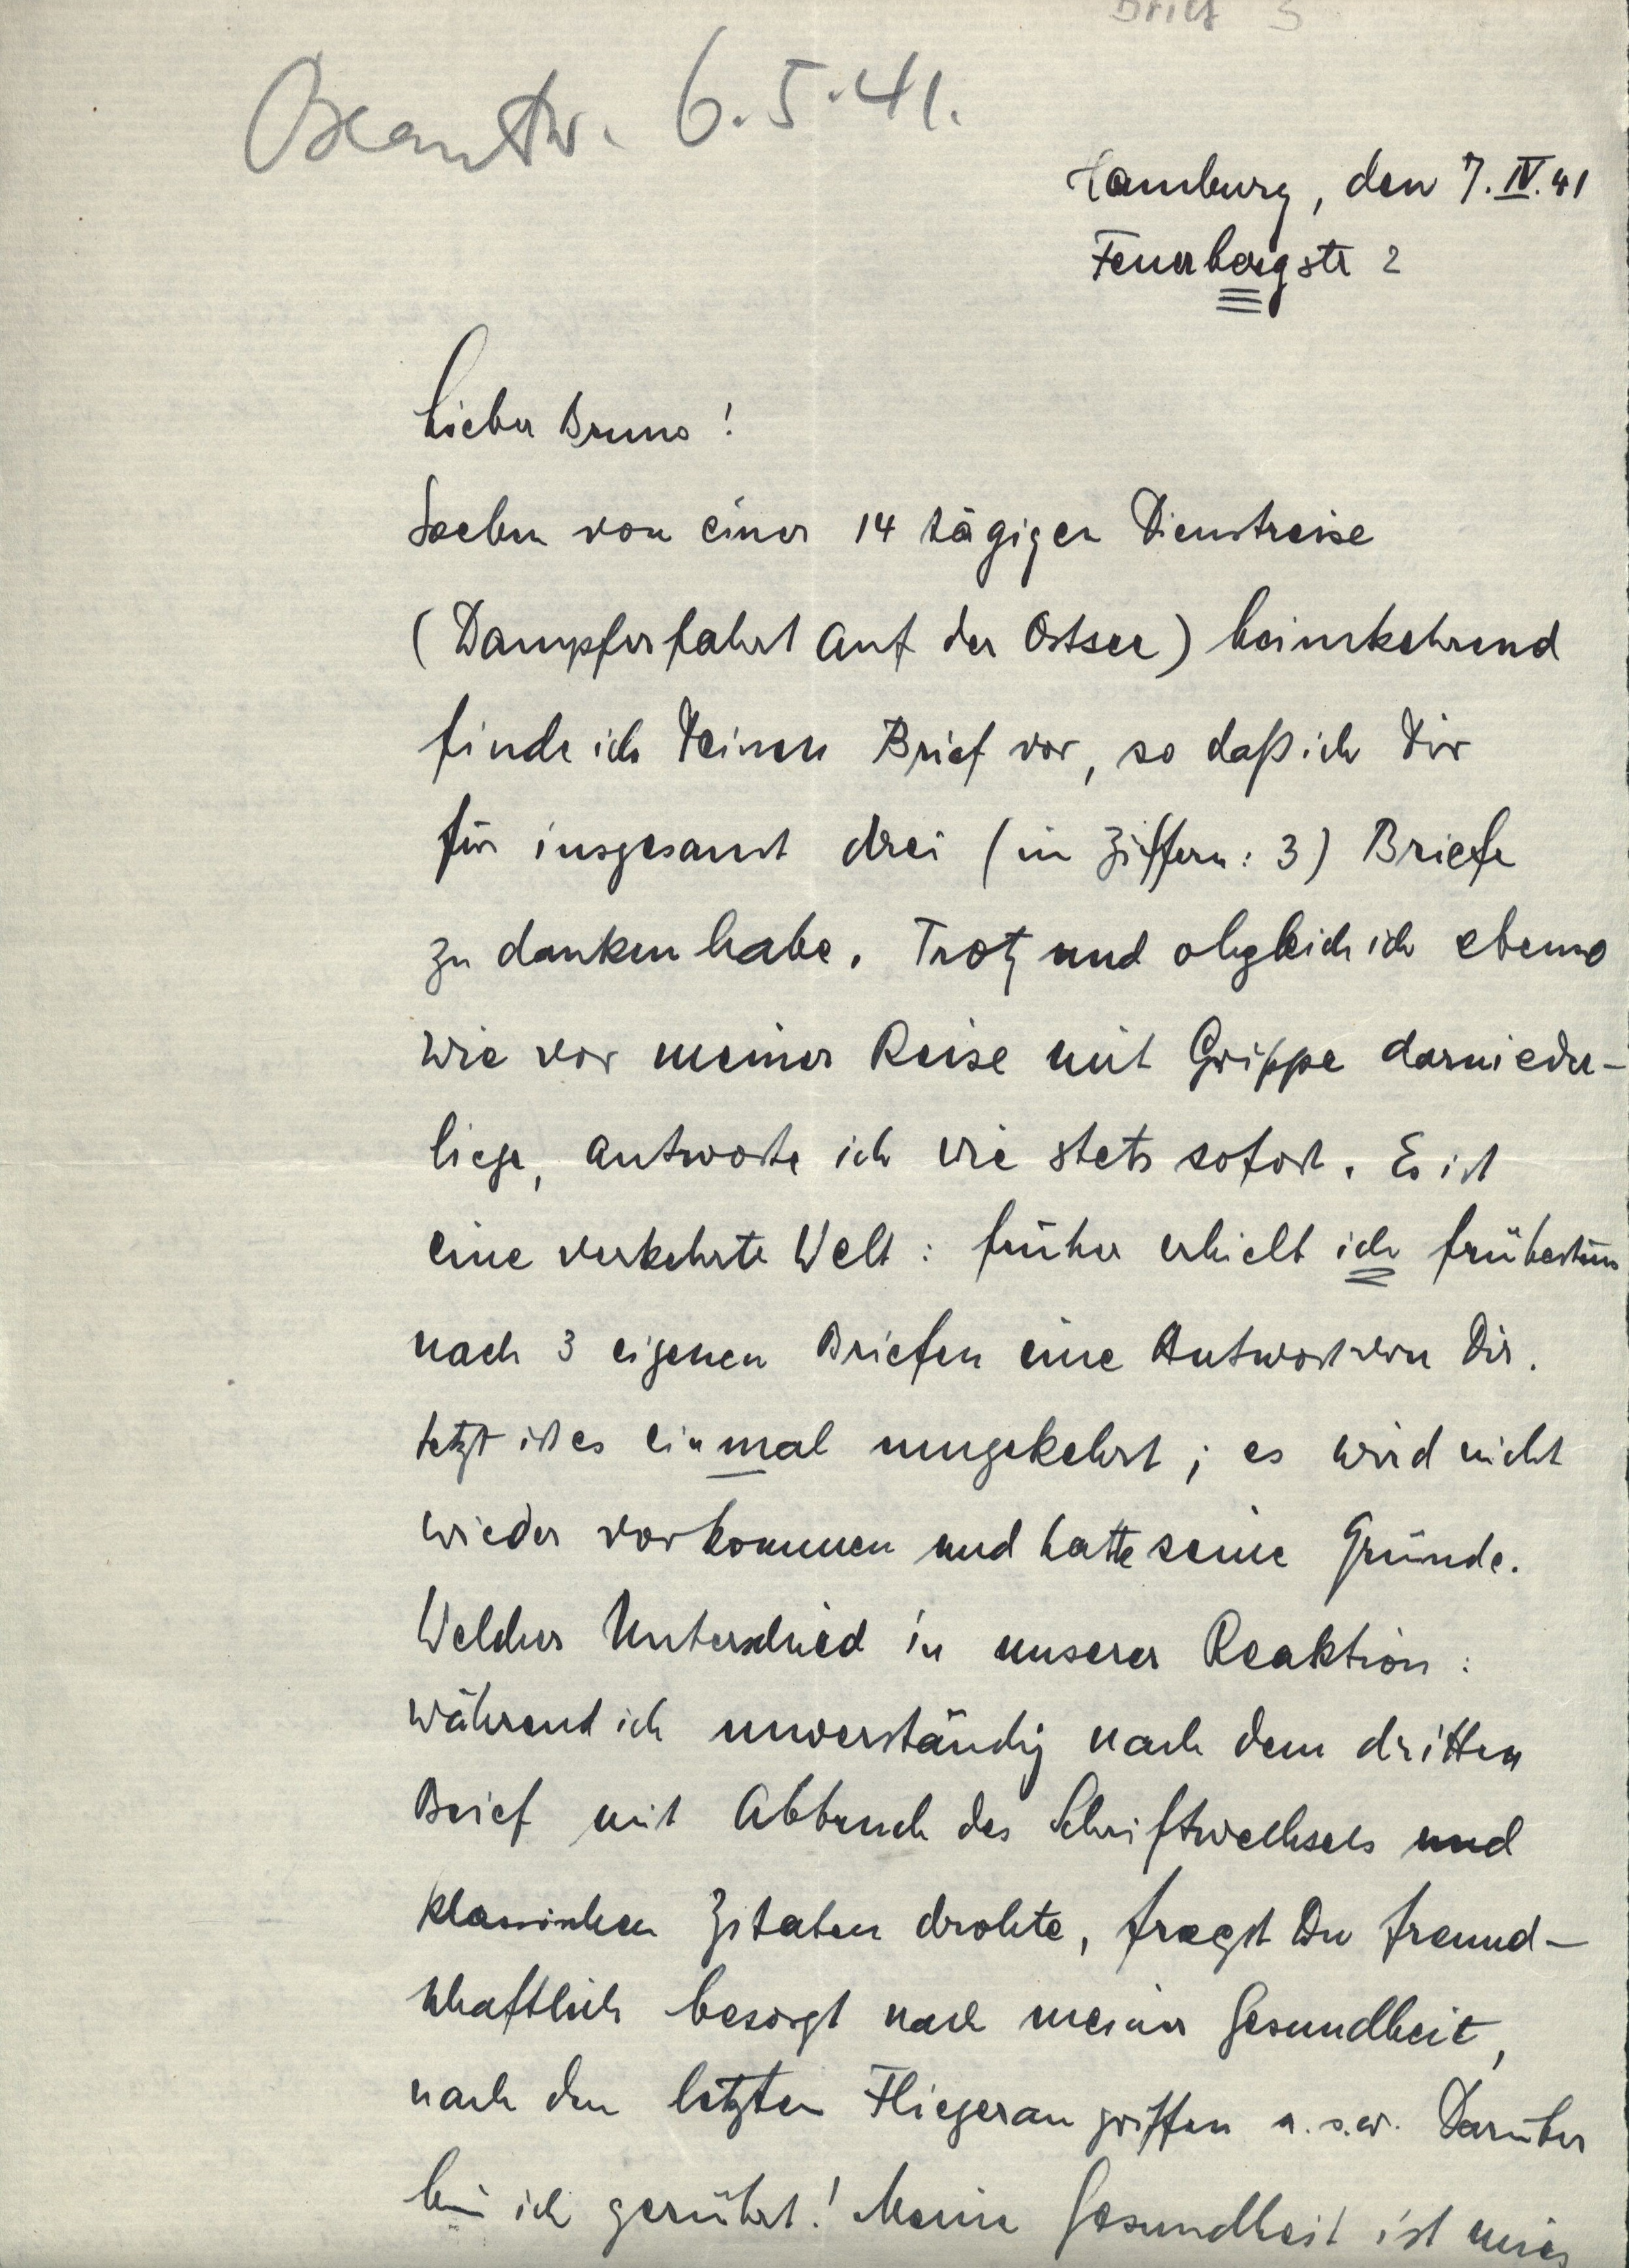 Brief 3
Beantw. 6.5.41.
Hamburg, den 7. IV. 41
Feuerbergstr 2
Lieber Bruno!
Soeben von einer 14 tägigen Dienstreise
(Dampferfahrt auf der Ostsee) heimkehrend
finde ich Deinen Brief vor, so daß ich Dir
für insgesamt drei (in Ziffern: 3) Briefe
zu danken habe. Trotz und obgleich ich ebenso
wie vor meiner Reise mit Grippe darnieder-
liege, antworte ich wie stets sofort. Es ist
eine verkehrte Welt: früher erhielt ich frühestens
nach 3 eigenen Briefen eine Antwort von Dir.
Jetzt ist es einmal umgekehrt; es wird nicht
wieder vorkommen und hatte seine Gründe.
Welcher Unterschied in unserer Reaktion:
während ich unverständig nach dem dritten
Brief mit Abbruch des Schriftwechsels und
klassischen Zitaten drohte, fragst Du freund-
schaftlich besorgt nach meiner Gesundheit,
nach den letzten Fliegerangriffen u.s.w. Darüber
bin ich gerührt! Meine Gesundheit ist